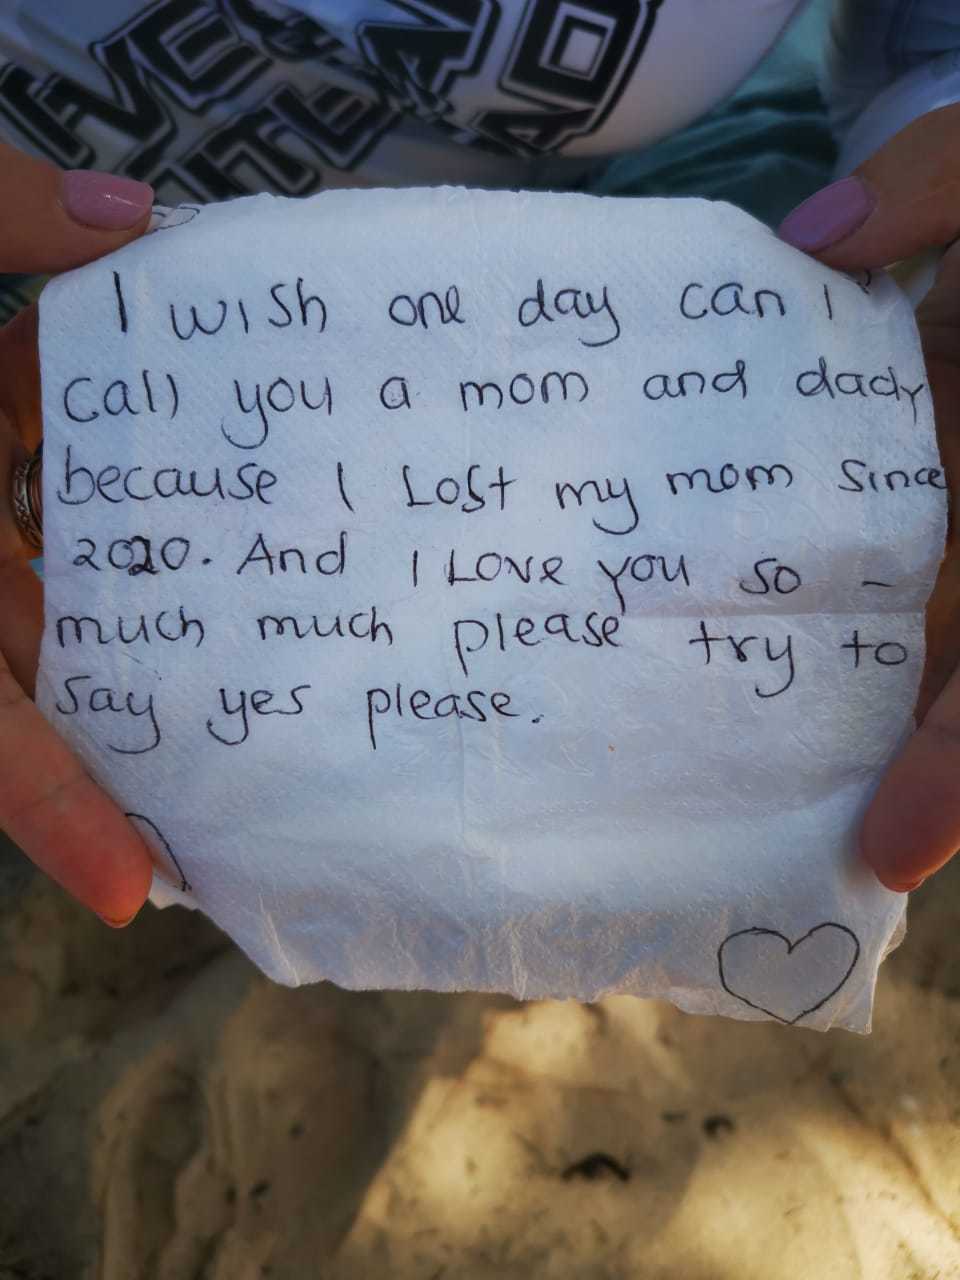 I wish one day can I
call you a mom and dady
because I Lost my mom since
2020. And I Love you so -
much much please try to
say yes please.